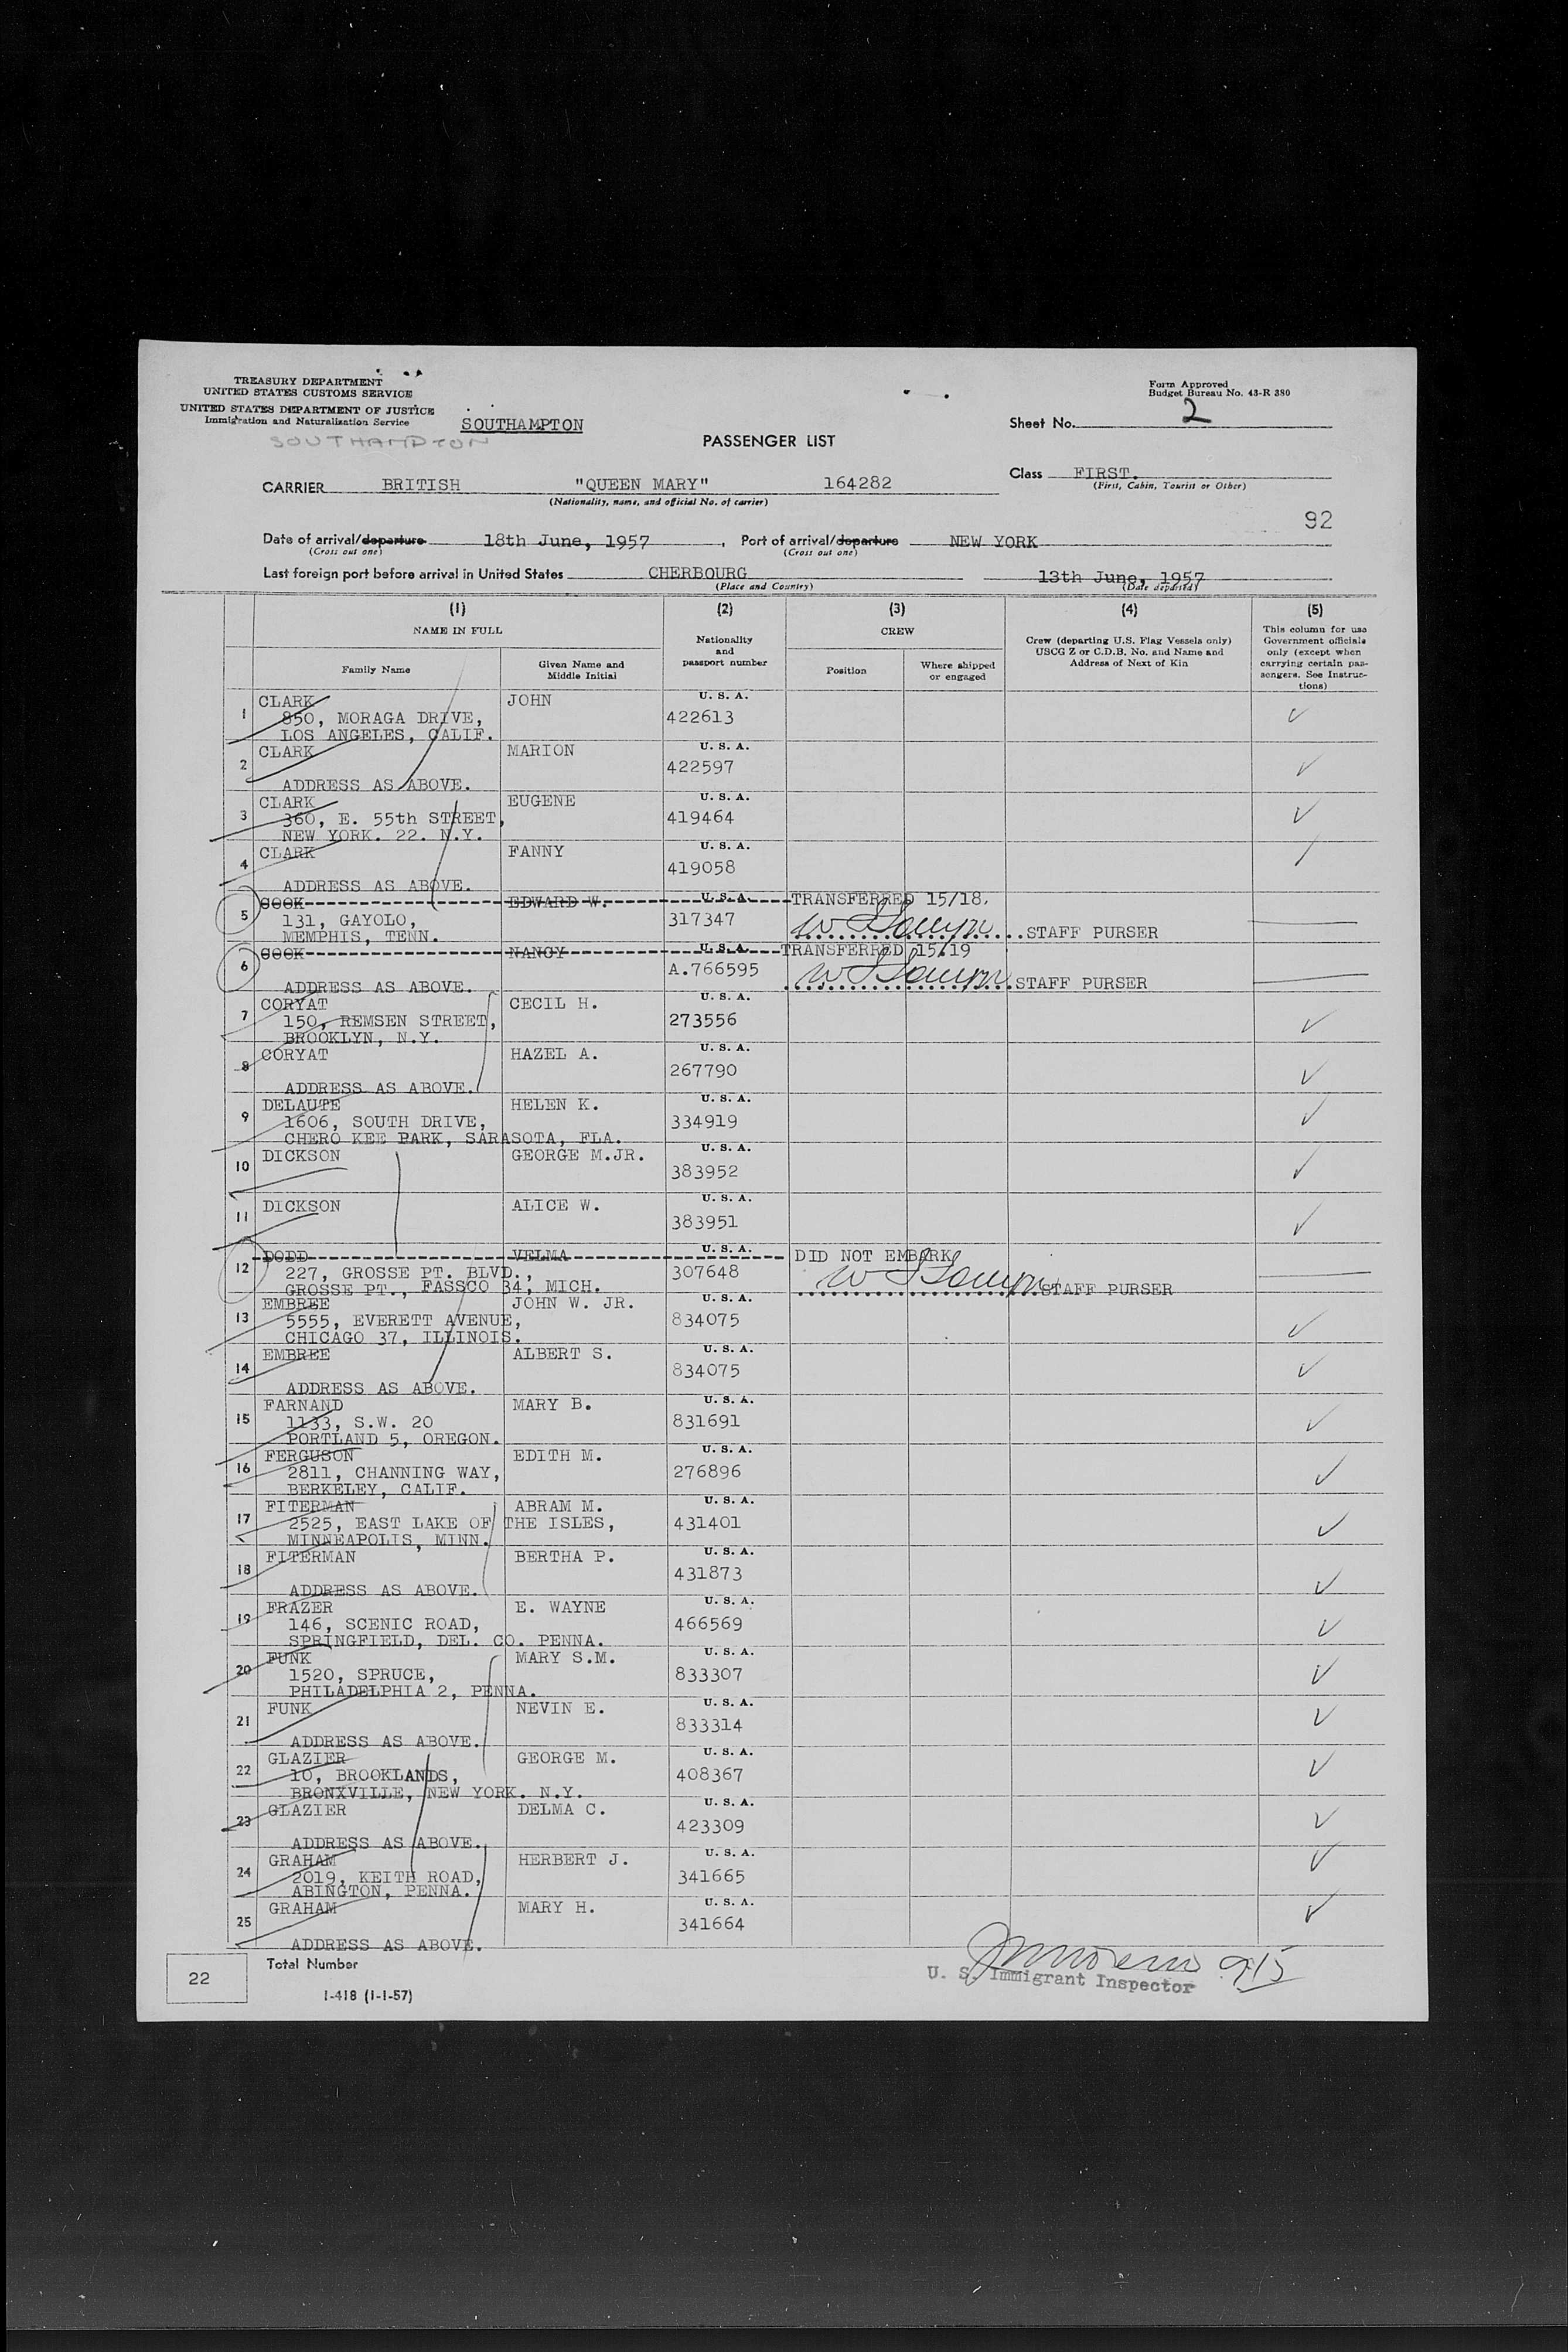 TREASURY DEPARTMENT
UNITED STATES CUSTOMS SERVICE
UNITED STATES DEPARTMENT OF JUSTICE
Immigration and Naturalization Service
SOUTHAMPTON
SOUTHAMPTON
PASSENGER LIST
Form Approved
Budget Bureau No. 43-R 380
Sheet No. 2
CARRIER BRITISH "QUEEN MARY" 164282
(Nationality, name, and official No. of carrier)
Class FIRST.
(First, Cabin, Tourist or Other)
92
Date of arrival/departure 18th June, 1957, Port of arrival/departure NEW YORK
(Cross out one) (Cross out one)
Last foreign port before arrival in United States CHERBOURG 13th June, 1957
(Place and Country) (Date departed)
(1) (2) (3) (4) (5)
NAME IN FULL
Family Name
Given Name and Middle Initial
Nationality and passport number
CREW
Position
Where shipped or engaged
Crew (departing U.S. Flag Vessels only) USCG Z or C.D.B. No. and Name and Address of Next of Kin
This column for use Government officials only (except when carrying certain passengers. See Instructions)
1 CLARK JOHN U. S. A.
850, MORAGA DRIVE, 422613
LOS ANGELES, CALIF.
2 CLARK MARION U. S. A.
422597
ADDRESS AS ABOVE.
3 CLARK EUGENE U. S. A.
360, E. 55th STREET, 419464
NEW YORK. 22. N.Y.
4 CLARK FANNY U. S. A.
419058
ADDRESS AS ABOVE.
5 COOK EDWARD W. U. S. A. TRANSFERRED 15/18.
131, GAYOLO, 317347
MEMPHIS, TENN. STAFF PURSER
6 COOK NANCY U. S. A. TRANSFERRED 15/19
A.766595
ADDRESS AS ABOVE. STAFF PURSER
7 CORYAT CECIL H. U. S. A.
150, REMSEN STREET, 273556
BROOKLYN, N.Y.
8 CORYAT HAZEL A. U. S. A.
267790
ADDRESS AS ABOVE.
9 DELAUTE HELEN K. U. S. A.
1606, SOUTH DRIVE, 334919
CHERO KEE PARK, SARASOTA, FLA.
10 DICKSON GEORGE M.JR. U. S. A.
383952
11 DICKSON ALICE W. U. S. A.
383951
12 DODD VELMA U. S. A. DID NOT EMBARK
227, GROSSE PT. BLVD., 307648
GROSSE PT., FASSCO 34, MICH. STAFF PURSER
13 EMBREE JOHN W. JR. U. S. A.
5555, EVERETT AVENUE, 834075
CHICAGO 37, ILLINOIS.
14 EMBREE ALBERT S. U. S. A.
834075
ADDRESS AS ABOVE.
15 FARNAND MARY B. U. S. A.
1133, S.W. 20 831691
PORTLAND 5, OREGON.
16 FERGUSON EDITH M. U. S. A.
2811, CHANNING WAY, 276896
BERKELEY, CALIF.
17 FITERMAN ABRAM M. U. S. A.
2525, EAST LAKE OF THE ISLES, 431401
MINNEAPOLIS, MINN.
18 FITERMAN BERTHA P. U. S. A.
431873
ADDRESS AS ABOVE.
19 FRAZER E. WAYNE U. S. A.
146, SCENIC ROAD, 466569
SPRINGFIELD, DEL. CO. PENNA.
20 FUNK MARY S.M. U. S. A.
1520, SPRUCE, 833307
PHILADELPHIA 2, PENNA.
21 FUNK NEVIN E. U. S. A.
833314
ADDRESS AS ABOVE.
22 GLAZIER GEORGE M. U. S. A.
10, BROOKLANDS, 408367
BRONXVILLE, NEW YORK. N.Y.
23 GLAZIER DELMA C. U. S. A.
423309
ADDRESS AS ABOVE.
24 GRAHAM HERBERT J. U. S. A.
2019, KEITH ROAD, 341665
ABINGTON, PENNA.
25 GRAHAM MARY H. U. S. A.
341664
ADDRESS AS ABOVE.
22 Total Number
915
U. S. Immigrant Inspector
I-418 (1-1-57)